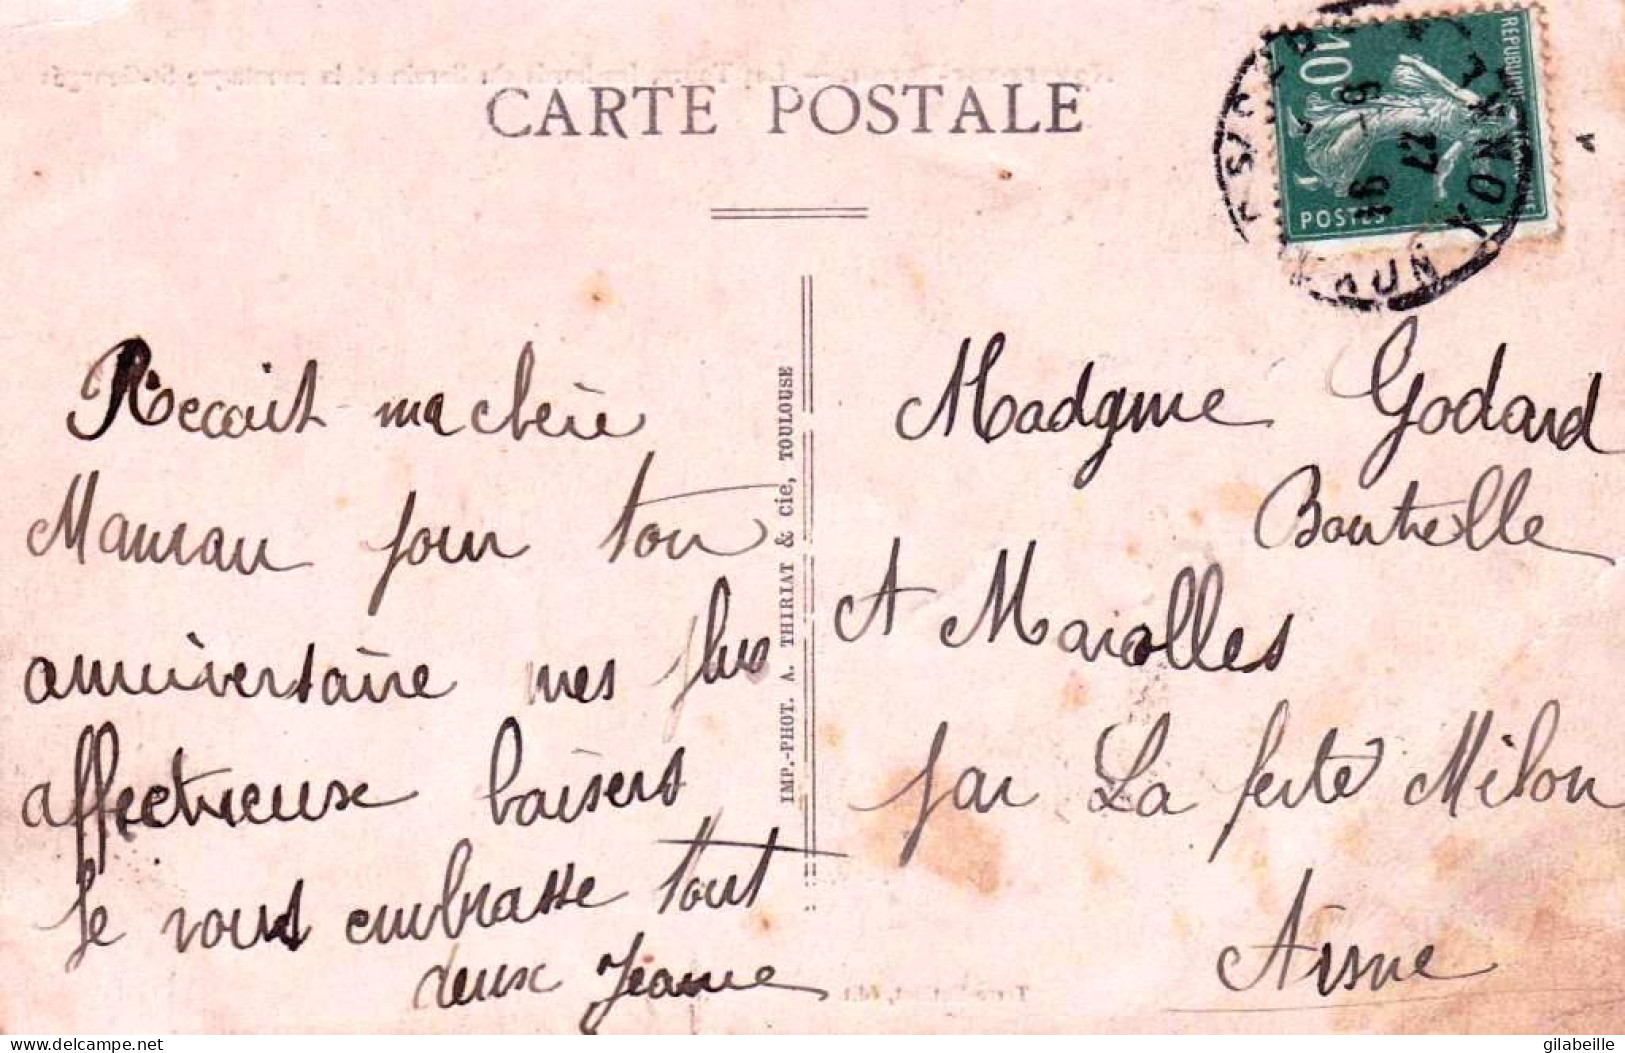 CARTE POSTALE
REPUBLIQUE FRANÇAISE
10
POSTES
Recoit ma chère
Maman pour ton
anniversaire mes plus
affectueuse baisers
Je vous embrasse tout
deux Jeanne
IMP.-PHOT. A. THIRIAT & Cie, TOULOUSE
Madame Godard
Bouthelle
A Marolles
par La ferté Milon
Aisne
delcampe.net
gilabeille